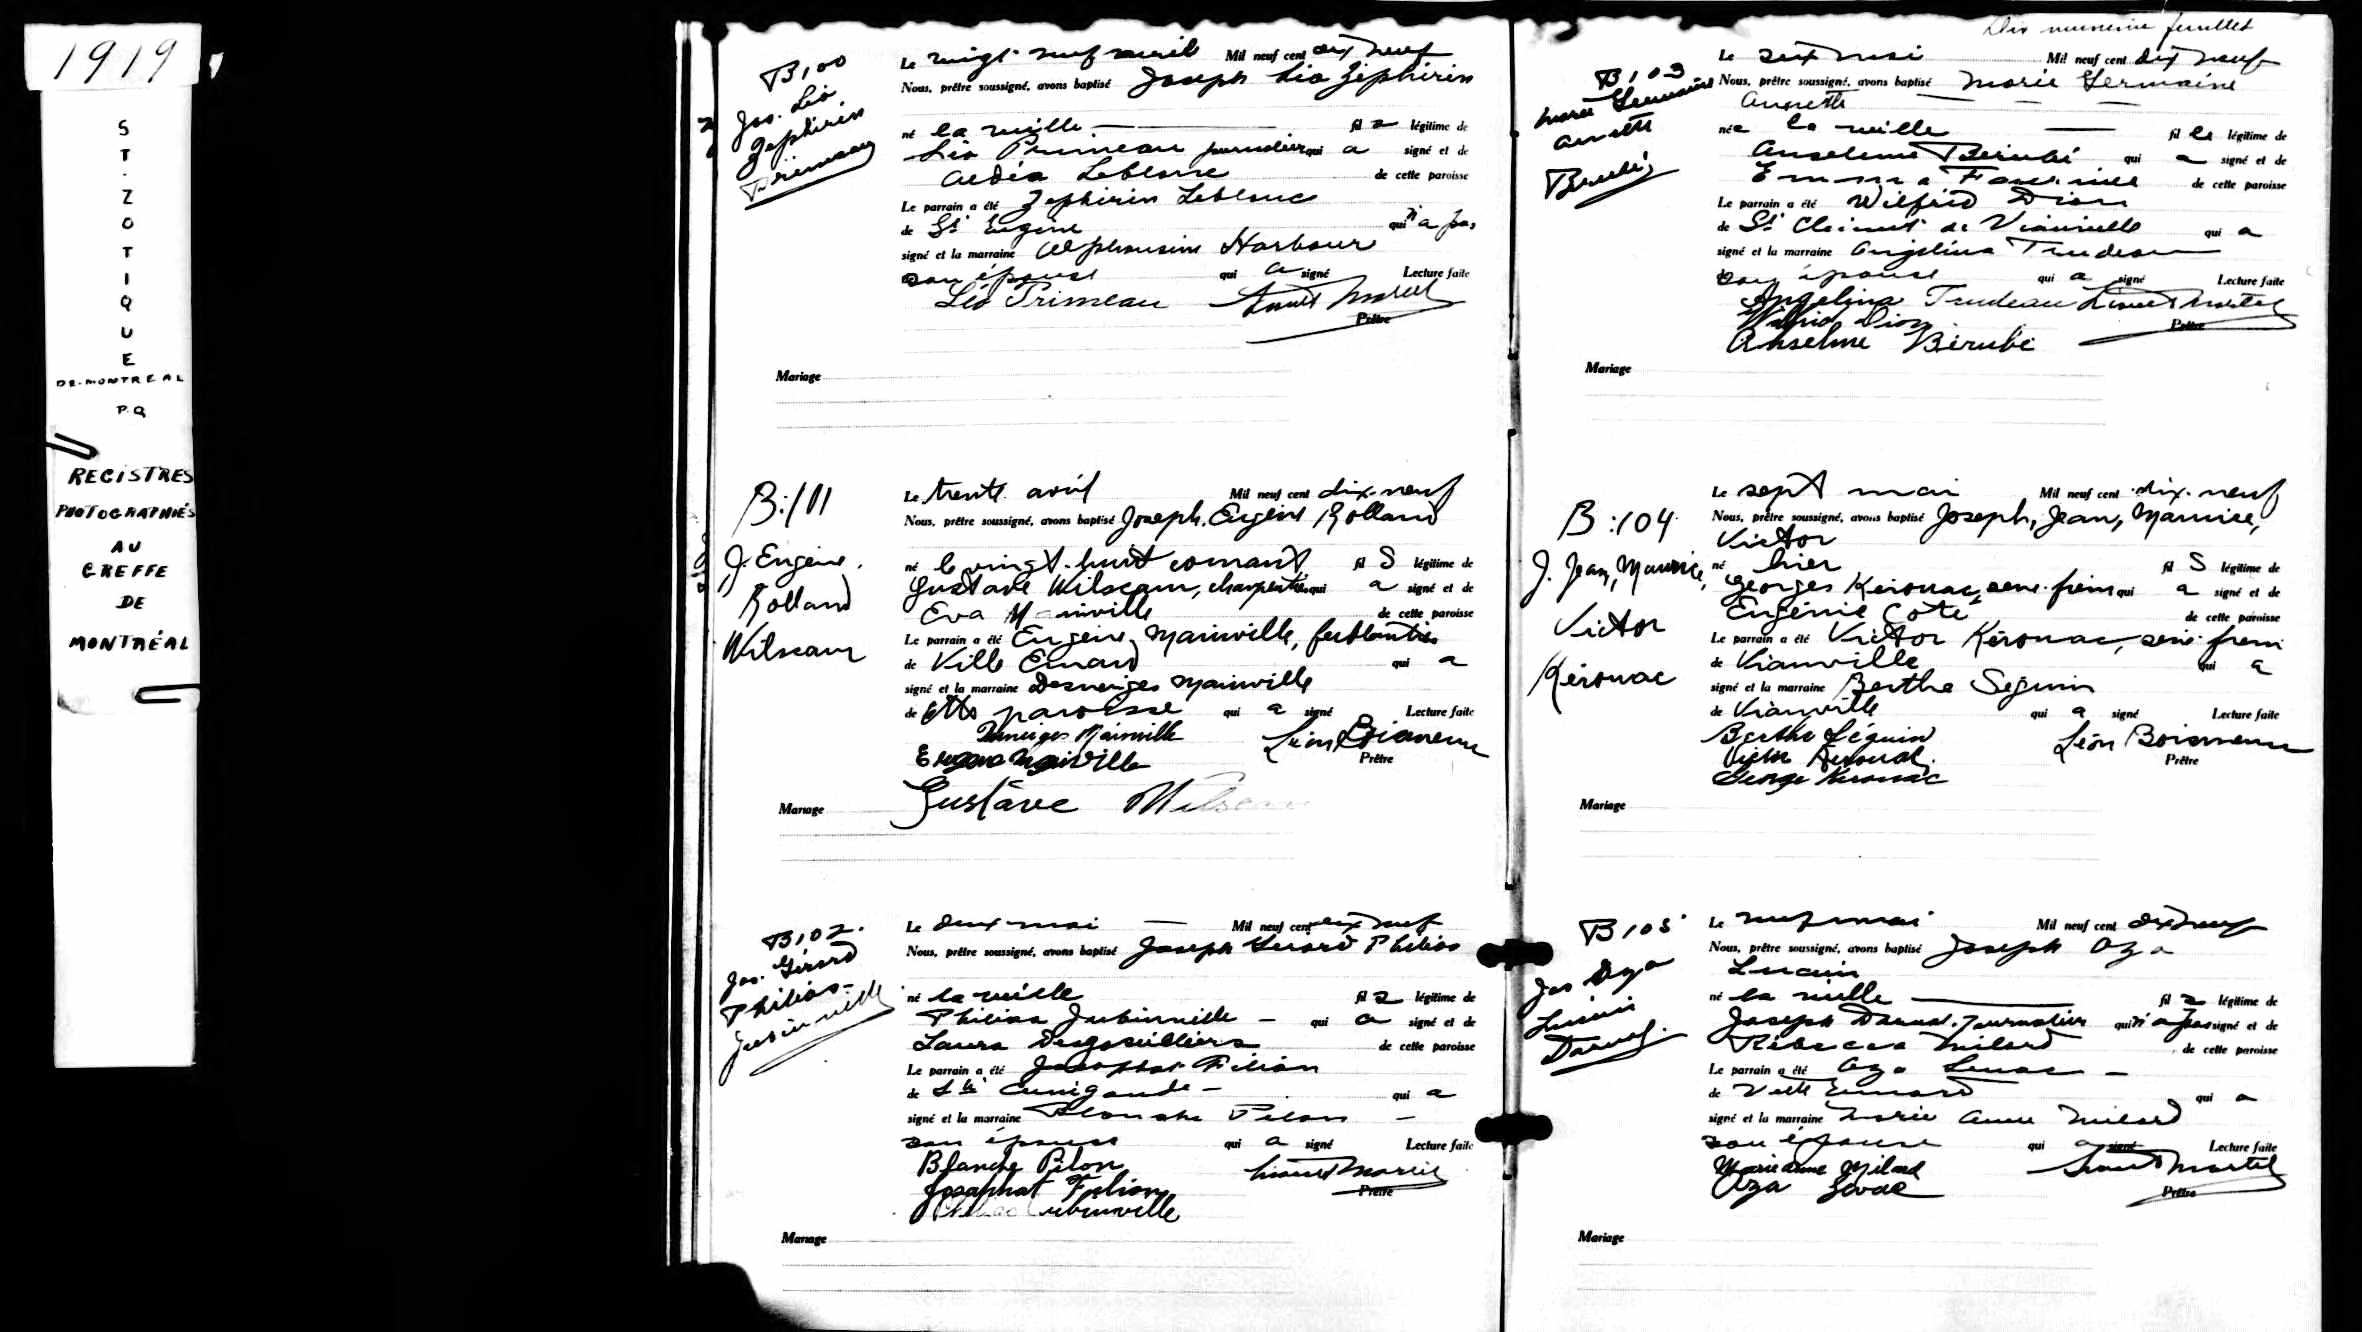 1919
ST. ZOTIQUE
DE MONTREAL
P.Q
REGISTRES
PHOTOGRAPHIÉS
AU
GREFFE
DE
MONTRÉAL
B100
Jos. Léo
Zéphirin
Primeau
Le vingt-neuf avril Mil neuf cent dix neuf
Nous, prêtre soussigné, avons baptisé Joseph Léo Zéphirin
né la veille fil s légitime de
Léo Primeau journalier qui a signé et de
Leblanc de cette paroisse
Le parrain a été Zéphirin Leblanc
de St Eugène qui n'a pas
signé et la marraine Alphonsine Harbour
son épouse qui a signé Lecture faite
Léo Primeau
Prêtre
Mariage
B:101
J. Eugène
Rolland
Wilscam
Le trente avril Mil neuf cent dix-neuf
Nous, prêtre soussigné, avons baptisé Joseph, Eugène Rolland
né le vingt-huit courant fil s légitime de
Gustave Wilscam, charpentier qui a signé et de
Eva Mainville de cette paroisse
Le parrain a été Eugène Mainville, ferblantier
de Ville Emard qui a
signé et la marraine Desneiges Mainville
de cette paroisse qui a signé Lecture faite
Desneiges Mainville
Mainville
Prêtre
Gustave
Mariage
B102.
Jos. Gérard
Philias
Jubinville
Le deux mai Mil neuf cent dix neuf
Nous, prêtre soussigné, avons baptisé Joseph Gérard Philias
né la veille fil s légitime de
Philias Jubinville - qui a signé et de
Laura Desgroseilliers de cette paroisse
Le parrain a été Josaphat Filion
de Ste Cunégonde - qui a
signé et la marraine Blanche Pilon -
son épouse qui a signé Lecture faite
Blanche Pilon
Josaphat Filion
Prêtre
Jubinville
Mariage
feuillet
B103
Marie Germaine
Annette
Bérubé
Le six mai Mil neuf cent dix neuf
Nous, prêtre soussigné, avons baptisé Marie Germaine
Annette
née la veille fil le légitime de
Anselme Bérubé qui a signé et de
Emma Fournier de cette paroisse
Le parrain a été Wilfrid Dion
de St Clément de Viauville qui a
signé et la marraine Angelina Trudeau
son épouse qui a signé Lecture faite
Angelina Trudeau
Wilfrid Dion
Prêtre
Anselme Bérubé
Mariage
B:104
J. Jean, Maurice,
Victor
Kérouac
Le sept mai Mil neuf cent dix-neuf
Nous, prêtre soussigné, avons baptisé Joseph, Jean, Maurice,
Victor
né hier fil s légitime de
Georges Kérouac, serre-freins qui a signé et de
Eugénie Côté de cette paroisse
Le parrain a été Victor Kérouac, serre-frein
de Viauville qui a
signé et la marraine Berthe Séguin
de Viauville qui a signé Lecture faite
Berthe Séguin Léon Boisvenu
Prêtre
George Kerouac
Mariage
B105
Jos Aza
Lucien
Le neuf mai Mil neuf cent dix neuf
Nous, prêtre soussigné, avons baptisé Joseph Aza
Lucien
né la veille fil s légitime de
Joseph journalier qui n'a pas signé et de
Rébecca Milard de cette paroisse
Le parrain a été Aza
de Ville Emard qui a
signé et la marraine Marie Anne Milard
son épouse qui a signé Lecture faite
Marie anne Milard
Aza
Prêtre
Mariage